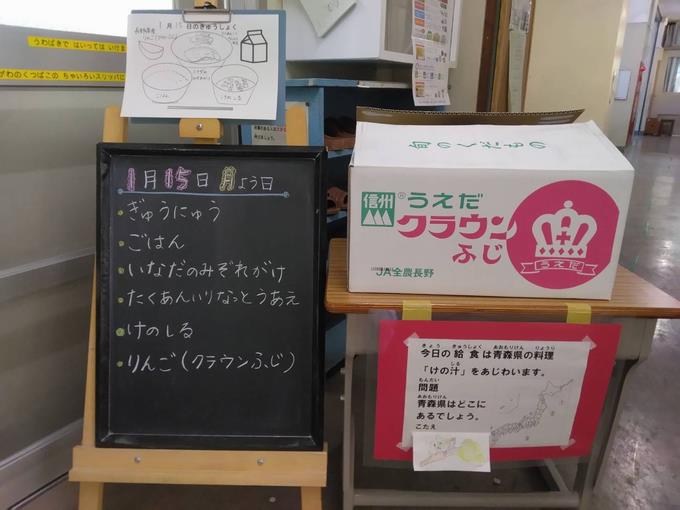 うわばきで はいっては いけま
がわのくつばこの ちゃいろいスリッパに
1月15日のきゅうしょく
ごはん
けのしる
1月15日月よう日
ぎゅうにゅう
ごはん
いなだのみぞれがけ
たくあんいりなっとうあえ
けのしる
りんご(クラウンふじ)
旬のくだもの
信州
®うえだ
クラウン
ふじ
JA全農長野
うえだ
きょう きゅうしょく あおもりけん りょうり
今日の給食は青森県の料理
しる
「けの汁」をあじわいます。
もんだい
問題
あおもりけん
青森県はどこに
あるでしょう。
こたえ